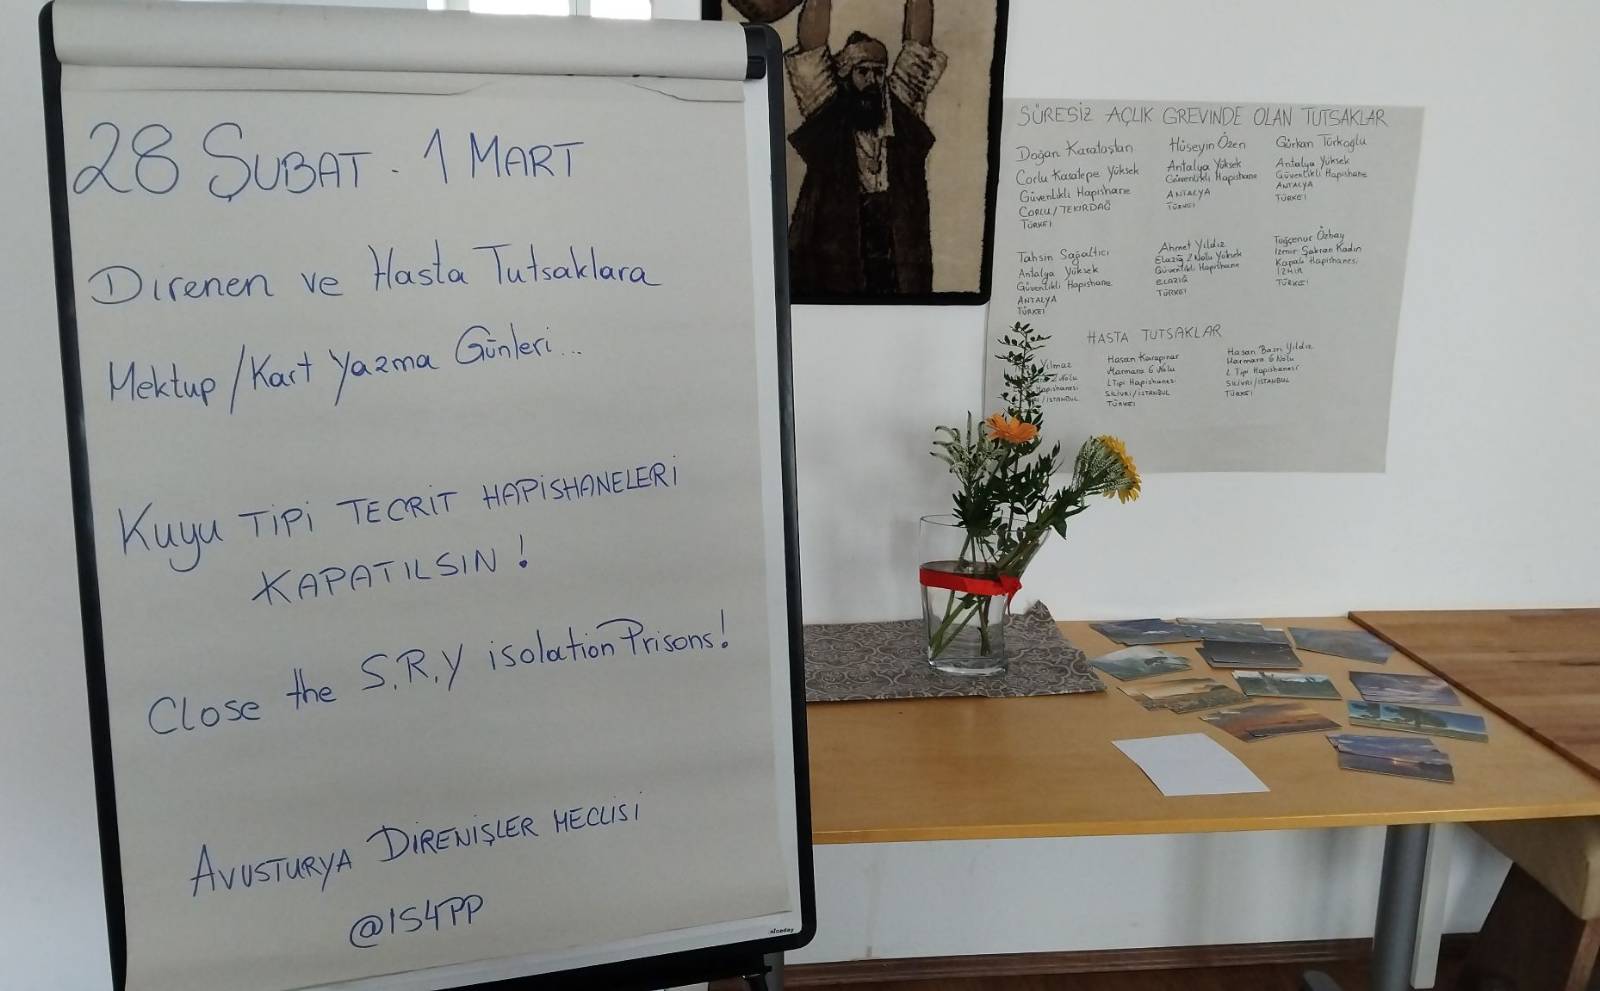 28 ŞUBAT - 1 MART
Direnen ve Hasta Tutsaklara
Mektup/Kart Yazma Günleri...
KUYU TİPİ TECRİT HAPİSHANELERİ
KAPATILSIN!
Close the S.R.Y isolation Prisons!
AVUSTURYA DİRENİŞLER MECLİSİ
@IS4PP
SÜRESİZ AÇLIK GREVINDE OLAN TUTSAKLAR
Doğan Karataştan
Corlu Karatepe Yüksek
Güvenlikli Hapishane
CORLU/TEKIRDAĞ
TÜRKEI
Hüseyin Özen
Antalya Yüksek
Güvenlikli Hapishane
ANTALYA
TÜRKEI
Gürkan Türkoğlu
Antalya Yüksek
Güvenlikli Hapishane
ANTALYA
TÜRKEI
Tahsin Sağaltıcı
Antalya Yüksek
Güvenlikli Hapishane
ANTALYA
TÜRKEI
Ahmet Yıldız
Elazığ 2 Nolu Yüksek
Güvenlikli Hapishane
ELAZIĞ
TÜRKEI
Tuğçenur Özbay
İzmir Şakran Kadın
Kapalı Hapishanesi
İZMİR
TÜRKEI
HASTA TUTSAKLAR
Yılmaz
2 Nolu
Hapishanesi
/ISTANBUL
Hasan Karapınar
Marmara 6 Nolu
L Tipi Hapishanesi
SİLİVRİ/ISTANBUL
TÜRKEI
Hasan Basri Yıldız
Marmara 6 Nolu
L Tipi Hapishanesi
SİLİVRİ/ISTANBUL
TÜRKEI